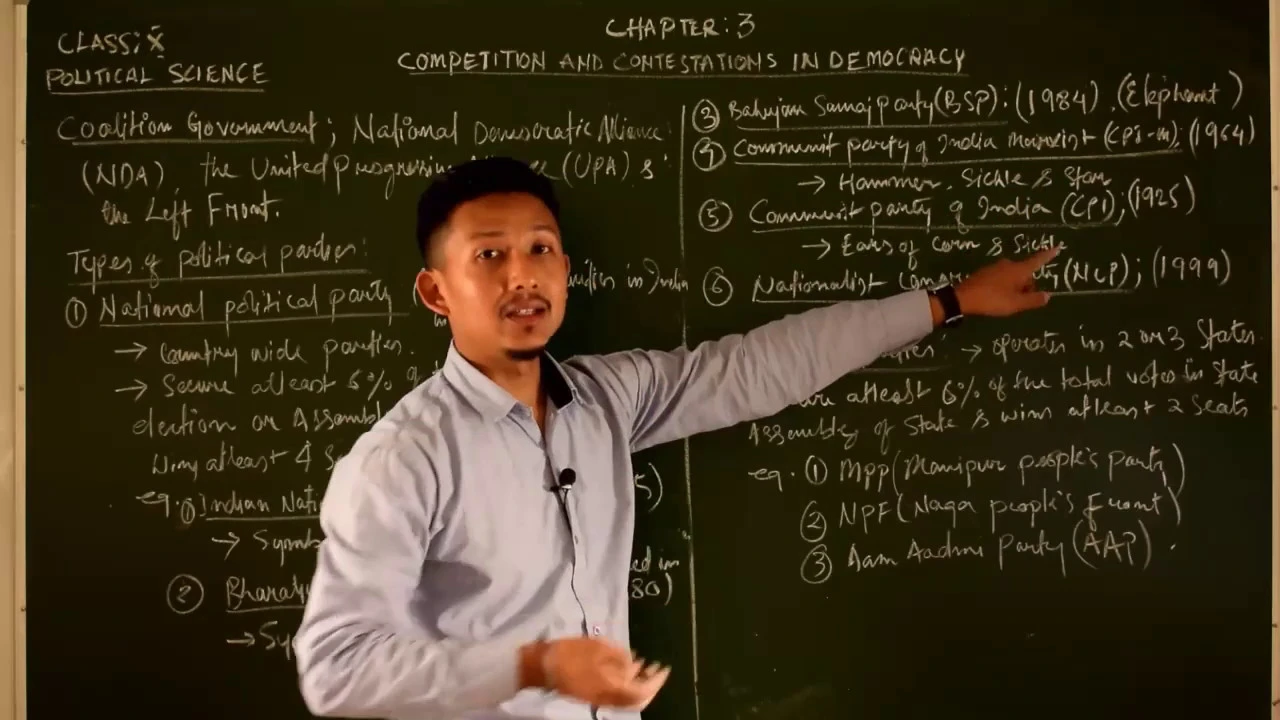 CHAPTER: 3
COMPETITION AND CONTESTATIONS IN DEMOCRACY
CLASS: X
POLITICAL SCIENCE
Coalition Government; National Democratic Alliance
(NDA), the United progressive (UPA) &
the Left Front.
Types of political parties:
① National political party
→ Country wide parties.
→ Secure atleast 6% of
election or
atleast 4
eg. ① Indian
→
②
→
in India
5)
in
80)
③ Bahujan Samaj party (BSP): (1984). (Elephant)
④ Communist party of India Marxist (CPI-M); (1964)
→ Hammer, Sickle & Star
⑤ Communist party of India (CPI); (1925)
→ Ears of Corn & Sickle
⑥ Nationalist (NCP); (1999)
→ operates in 2 or 3 States.
atleast 6% of the total votes in State
Assembly of State & wins atleast 2 Seats
eg. ① MPP (Manipur people's party)
② NPF (Naga people's Front)
③ Aam Aadmi Party (AAP).